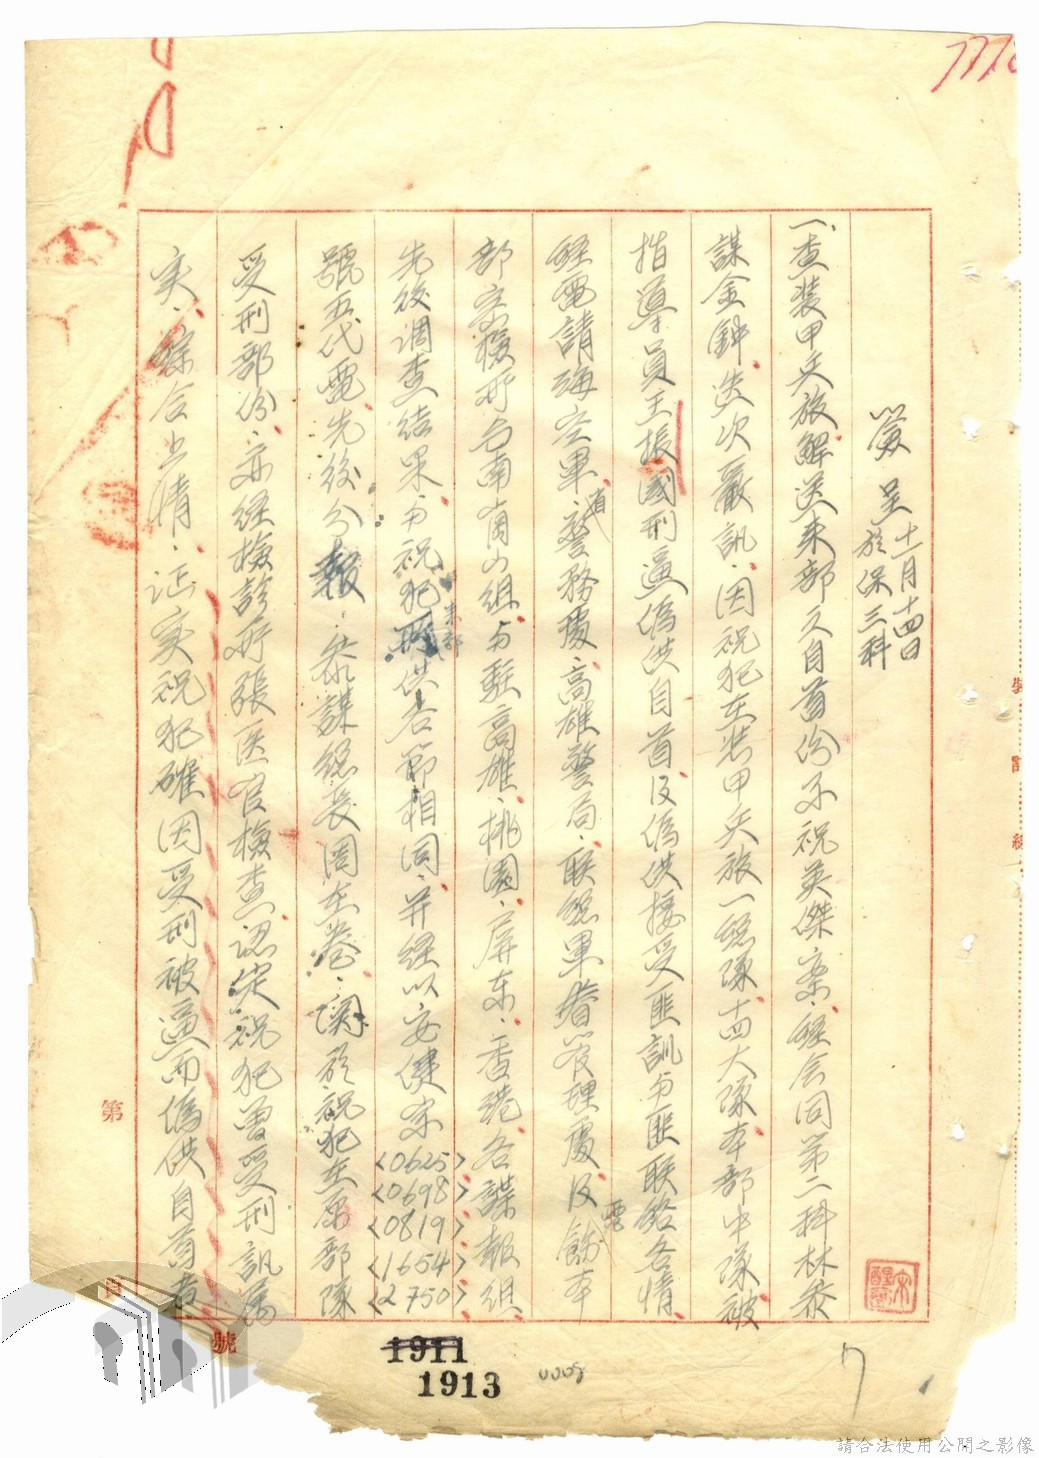 簽呈 十一月十四日
於保三科
一、查裝甲兵旅解送來部之自首份子祝英傑案、經會同第二科林參
謀金鐘、迭次嚴訊、因祝犯在裝甲兵旅一總隊、十四大隊本部中隊、被
指導員王振國刑逼偽供自首、及偽供接受匪訓與匪联絡各情、
經電請海空軍、首警務處、高雄警局、联總軍眷管理處、及電飭本
部京檢所與南崗山組、與駐高雄、桃園、屏東、香港、各諜報組、
先後調查結果、与祝犯來部所供各節相同、并経以安健宗
<0625>
<0698>
<0819>
<1654>
<2750>
號五代電、先後分報、參謀總長周在卷、関於祝犯在原部隊
受刑部份、亦經檢診所張医官檢查、認定祝犯曾受刑訊屬
实、綜合上情、証实祝犯確因受刑被逼而偽供自首者、
第
頁
號
1911
1913
0008
7
請合法使用公開之影像